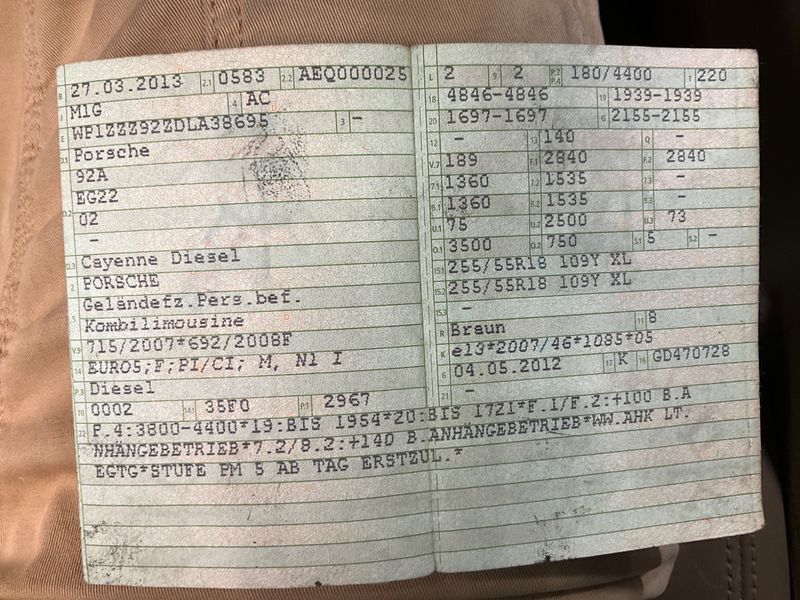 B 27.03.2013 2.1 0583 2.2 AEQ000025
J M1G 4 AC
E WP1ZZZ92ZDLA38695 3 -
D.1 Porsche
92A
D.2 EG22
02
-
D.3 Cayenne Diesel
2 PORSCHE
5 Geländefz.Pers.bef.
Kombilimousine
V.9 715/2007*692/2008F
14 EURO5;F;PI/CI; M, N1 I
P.3 Diesel
10 0002 14.1 35F0 P.1 2967
L 2 9 2 P.2 P.4 180/4400 T 220
18 4846-4846 19 1939-1939
20 1697-1697 G 2155-2155
12 - 13 140 Q -
V.7 189 F.1 2840 F.2 2840
7.1 1360 7.2 1535 7.3 -
8.1 1360 8.2 1535 8.3 -
U.1 75 U.2 2500 U.3 73
O.1 3500 O.2 750 S.1 5 S.2 -
15.1 255/55R18 109Y XL
15.2 255/55R18 109Y XL
15.3 -
R Braun 11 8
K e13*2007/46*1085*05
6 04.05.2012 17 K 16 GD470728
21 -
22 P.4:3800-4400*19:BIS 1954*20:BIS 1721*F.1/F.2:+100 B.A
NHÄNGEBETRIEB*7.2/8.2:+140 B.ANHÄNGEBETRIEB*WW.AHK LT.
EGTG*STUFE PM 5 AB TAG ERSTZUL.*